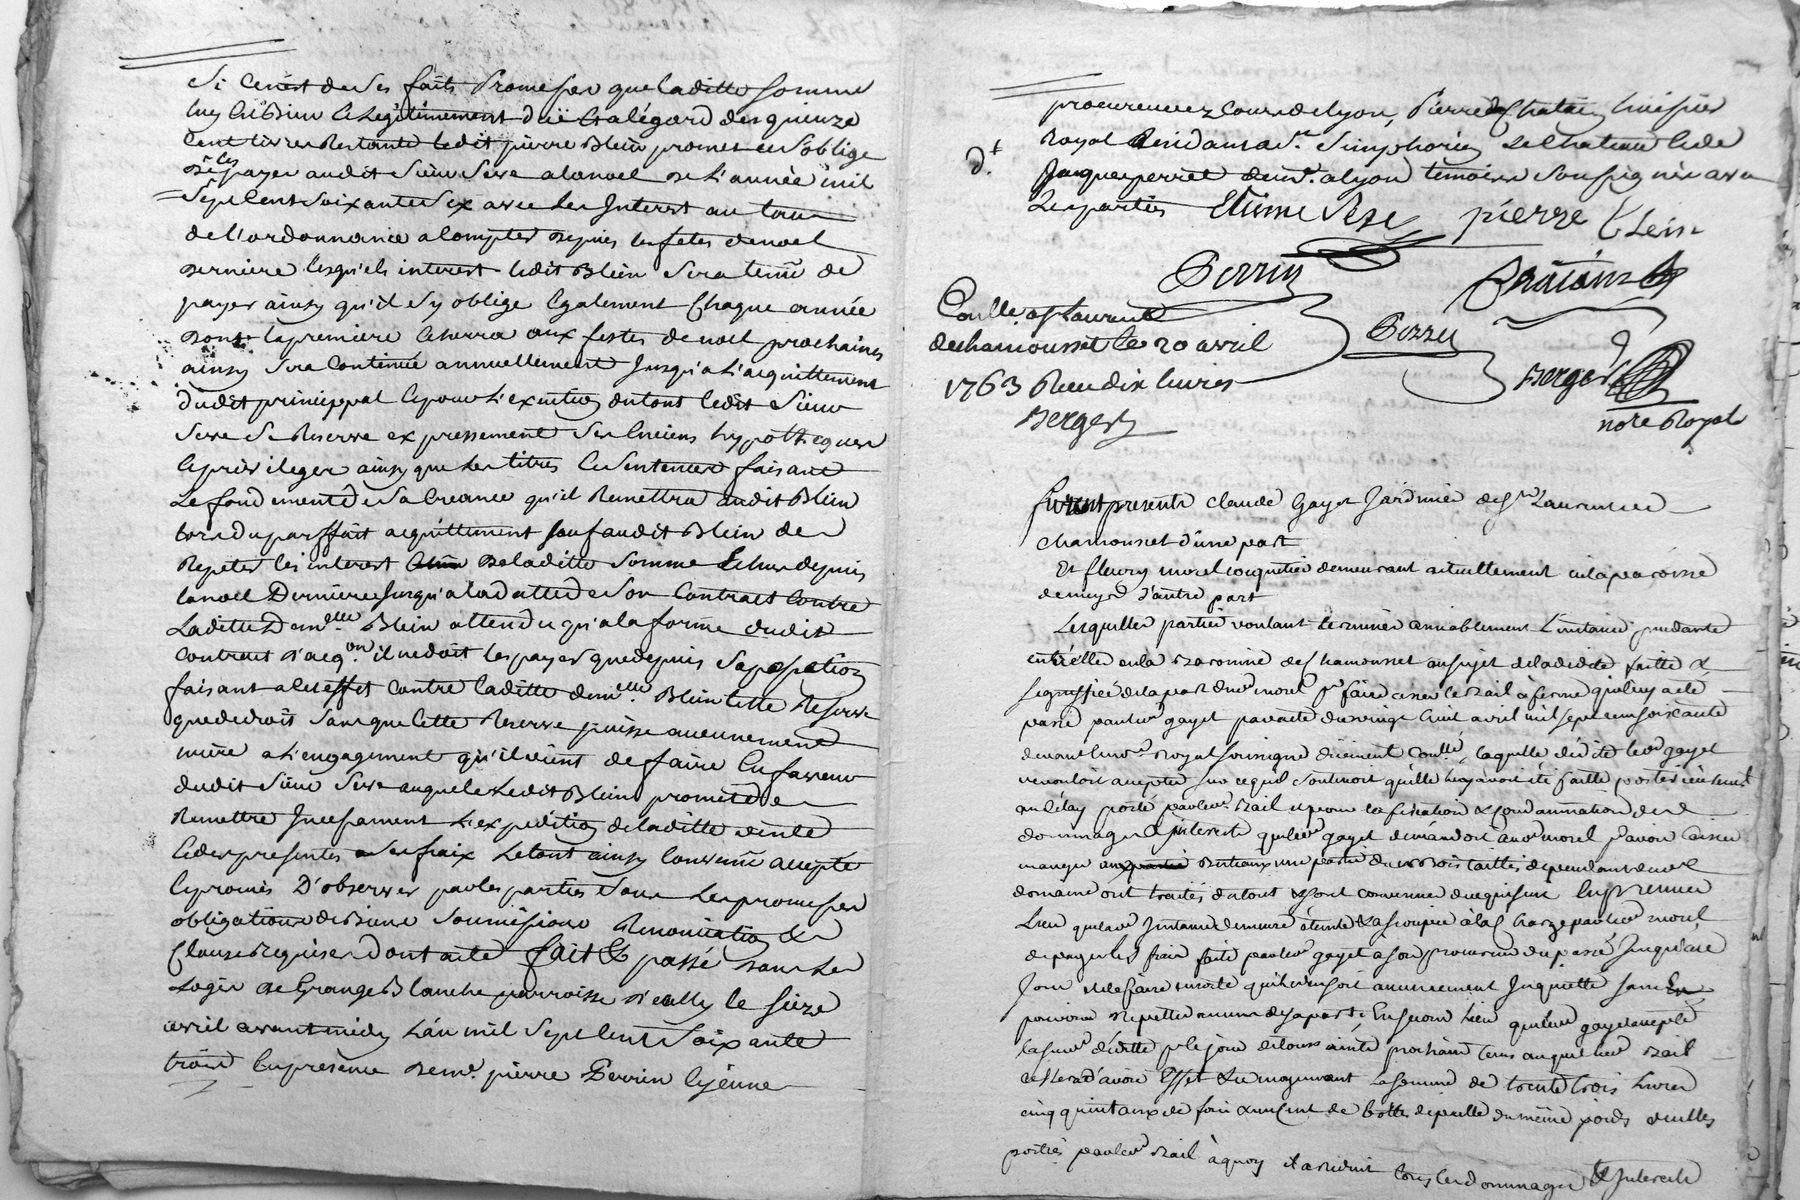 Si ce n'est de ses faits Promesses que laditte somme
luy est Bien et Légitimement düe Et a légard des quinze
cent livres Restante ledit pierre Blein promet et s'oblige
de les payer audit Sieur Seve a la noel de L'année mil
Sept Cent Soixante Six avec les Interest au taux
de l'ordonnance a Compter depuis les fetes de noel
derniere lesquels interest ledit Blein Sera tenü de
payer ainsy qu'il s'y oblige Egalement Chaque année
dont la premiere Echerra aux festes de noel prochaines
ainsy Sera Continué annuellement Jusqu'a L'acquittement
dudit principal Et pour L'exécution du tout ledit Sieur
Seve Se Reserve expressement Ses anciens hypotheques
Et privileges ainsy que les titres Et Sentences faisant
Le fondement de Sa Creance qu'il Remettra audit Blein
lors du parffait acquittement Sauf audit Blein de
Repeter les interest de laditte Somme Echus depuis
la noel Derniere Jusqu'a la datte de Son Contract Contre
Laditte Demlle. Blein attendu qu'a la forme dudit
Contract d'acqon. il ne doit les payer que depuis Sa possession
faisant a cet effet Contre laditte demlle. Blein Cette Reserve
que de droit Sans que Cette Reserve puisse aucunement
nuire a L'engagement qu'il vient de faire En faveur
dudit Sieur Seve auquel Ledit Blein promet de
Remettre Incessament L'expedition de laditte vente
Et des presentes a Ses fraix Le tout ainsy Convenü accepté
Et promis D'observer par les parties Sous Les promesses
obligations de Biens Soumissions Renonciations &
Clauses Requises dont acte fait & passé dans Le
Logis de Grange Blanche parroisse d'ecully le Seize
avril avant midy L'an mil Sept Cent Soixante
trois En presence de me. pierre Perrin Le Jeune
procureur ez Cours de Lyon, Pierre Chatain huissier
Royal Residant a St. Simphorien Le Chateau Et de
Jacques perret demt. a Lyon temoins Soussignés avec
Les parties Etienne Seve pierre blein
Perrin Chatain
Conllé a St Laurent
de chamousset le 20 avril
1763 Reçu dix livres
Berger
Perret
Berger
notre Royal
furent presents Claude Gayet Jardinier de St Laurent de
Chamousset d'une part
Et fleury morel coquetier demeurant actuellement en la paroisse
de meys d'autre part
Lesquelles parties voulant terminer amiablement L'instance pendante
entr'elle en la Baronnie de Chamousset au sujet de la dedite faitte &
Signiffiée de la part dud. morel pr. faire cesser le Bail à ferme qui luy a été
passé par led. gayet par acte du vingt huit avril mil sept cent soixante
devant le nore. Royal soussigné duement Conllé, laquelle dédite led. gayet
refusoit accepter sur ce qu'il Soutenoit qu'elle luy avoit été faitte posterieurement
au délay porté par led. Bail et pour la fixation & condamnation des
dommages & interests que led. gayet demandoit aud. morel pr. avoir laissé
manger aux Bestiaux une partie du Bois taillis dependant dud.
domaine ont traités du tout & sont convenues de ce qui suit En premier
Lieu que lad. Instance demeure éteinte & assoupie à la Charge par led. morel
de payer les frais faits par led. gayet a son procureur du passé Jusqu'à ce
Jour et de faire ensorte qu'il n'en soit aucunement Inquietté sans
pouvoir Repetter aucun de sa part; En second Lieu que led. gayet accepte
lad. dédite pr. le jour de toussaints prochain tems auquel led. Bail
cessera d'avoir Effet & ce moyennant La somme de trente trois Livres
cinq quintaux de foin & un cent de bottes de paille du même poids que celles
portées par led. Bail à quoy il a Reduit tous les dommages & Interests